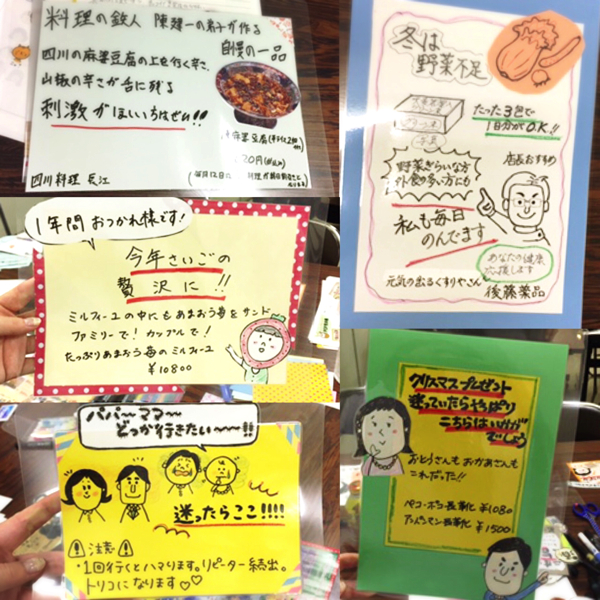 料理の鉄人 陳建一の弟子が作る
自慢の一品
四川の麻婆豆腐の上を行く辛さ
山椒の辛さが舌に残る
刺激がほしい方はぜひ!!
四川料理 長江
冬は
野菜不足
たった3包で
1日分がO.K.!!
野菜ぎらいな方
外食の多い方にも
店長おすすめ
私も毎日
のんでます
あなたの健康
応援します
元気の出るくすりやさん
後藤薬品
1年間おつかれ様です!
今年さいごの
贅沢に!!
ミルフィーユの中にもあまおう苺をサンド
ファミリーで!カップルで!
たっぷりあまおう苺のミルフィーユ
¥10800
クリスマスプレゼント
迷っていたらやっぱり
こちらはいかが
でしょう
おとうさんもおかあさんも
これだった!!
ペコ・ポコ長靴 ¥1080
¥1500
パパ〜ママ〜
どっか行きたい〜〜!!
迷ったらここ!!!!
注意
・1回行くとハマります。リピーター続出。
トリコになります♡♡